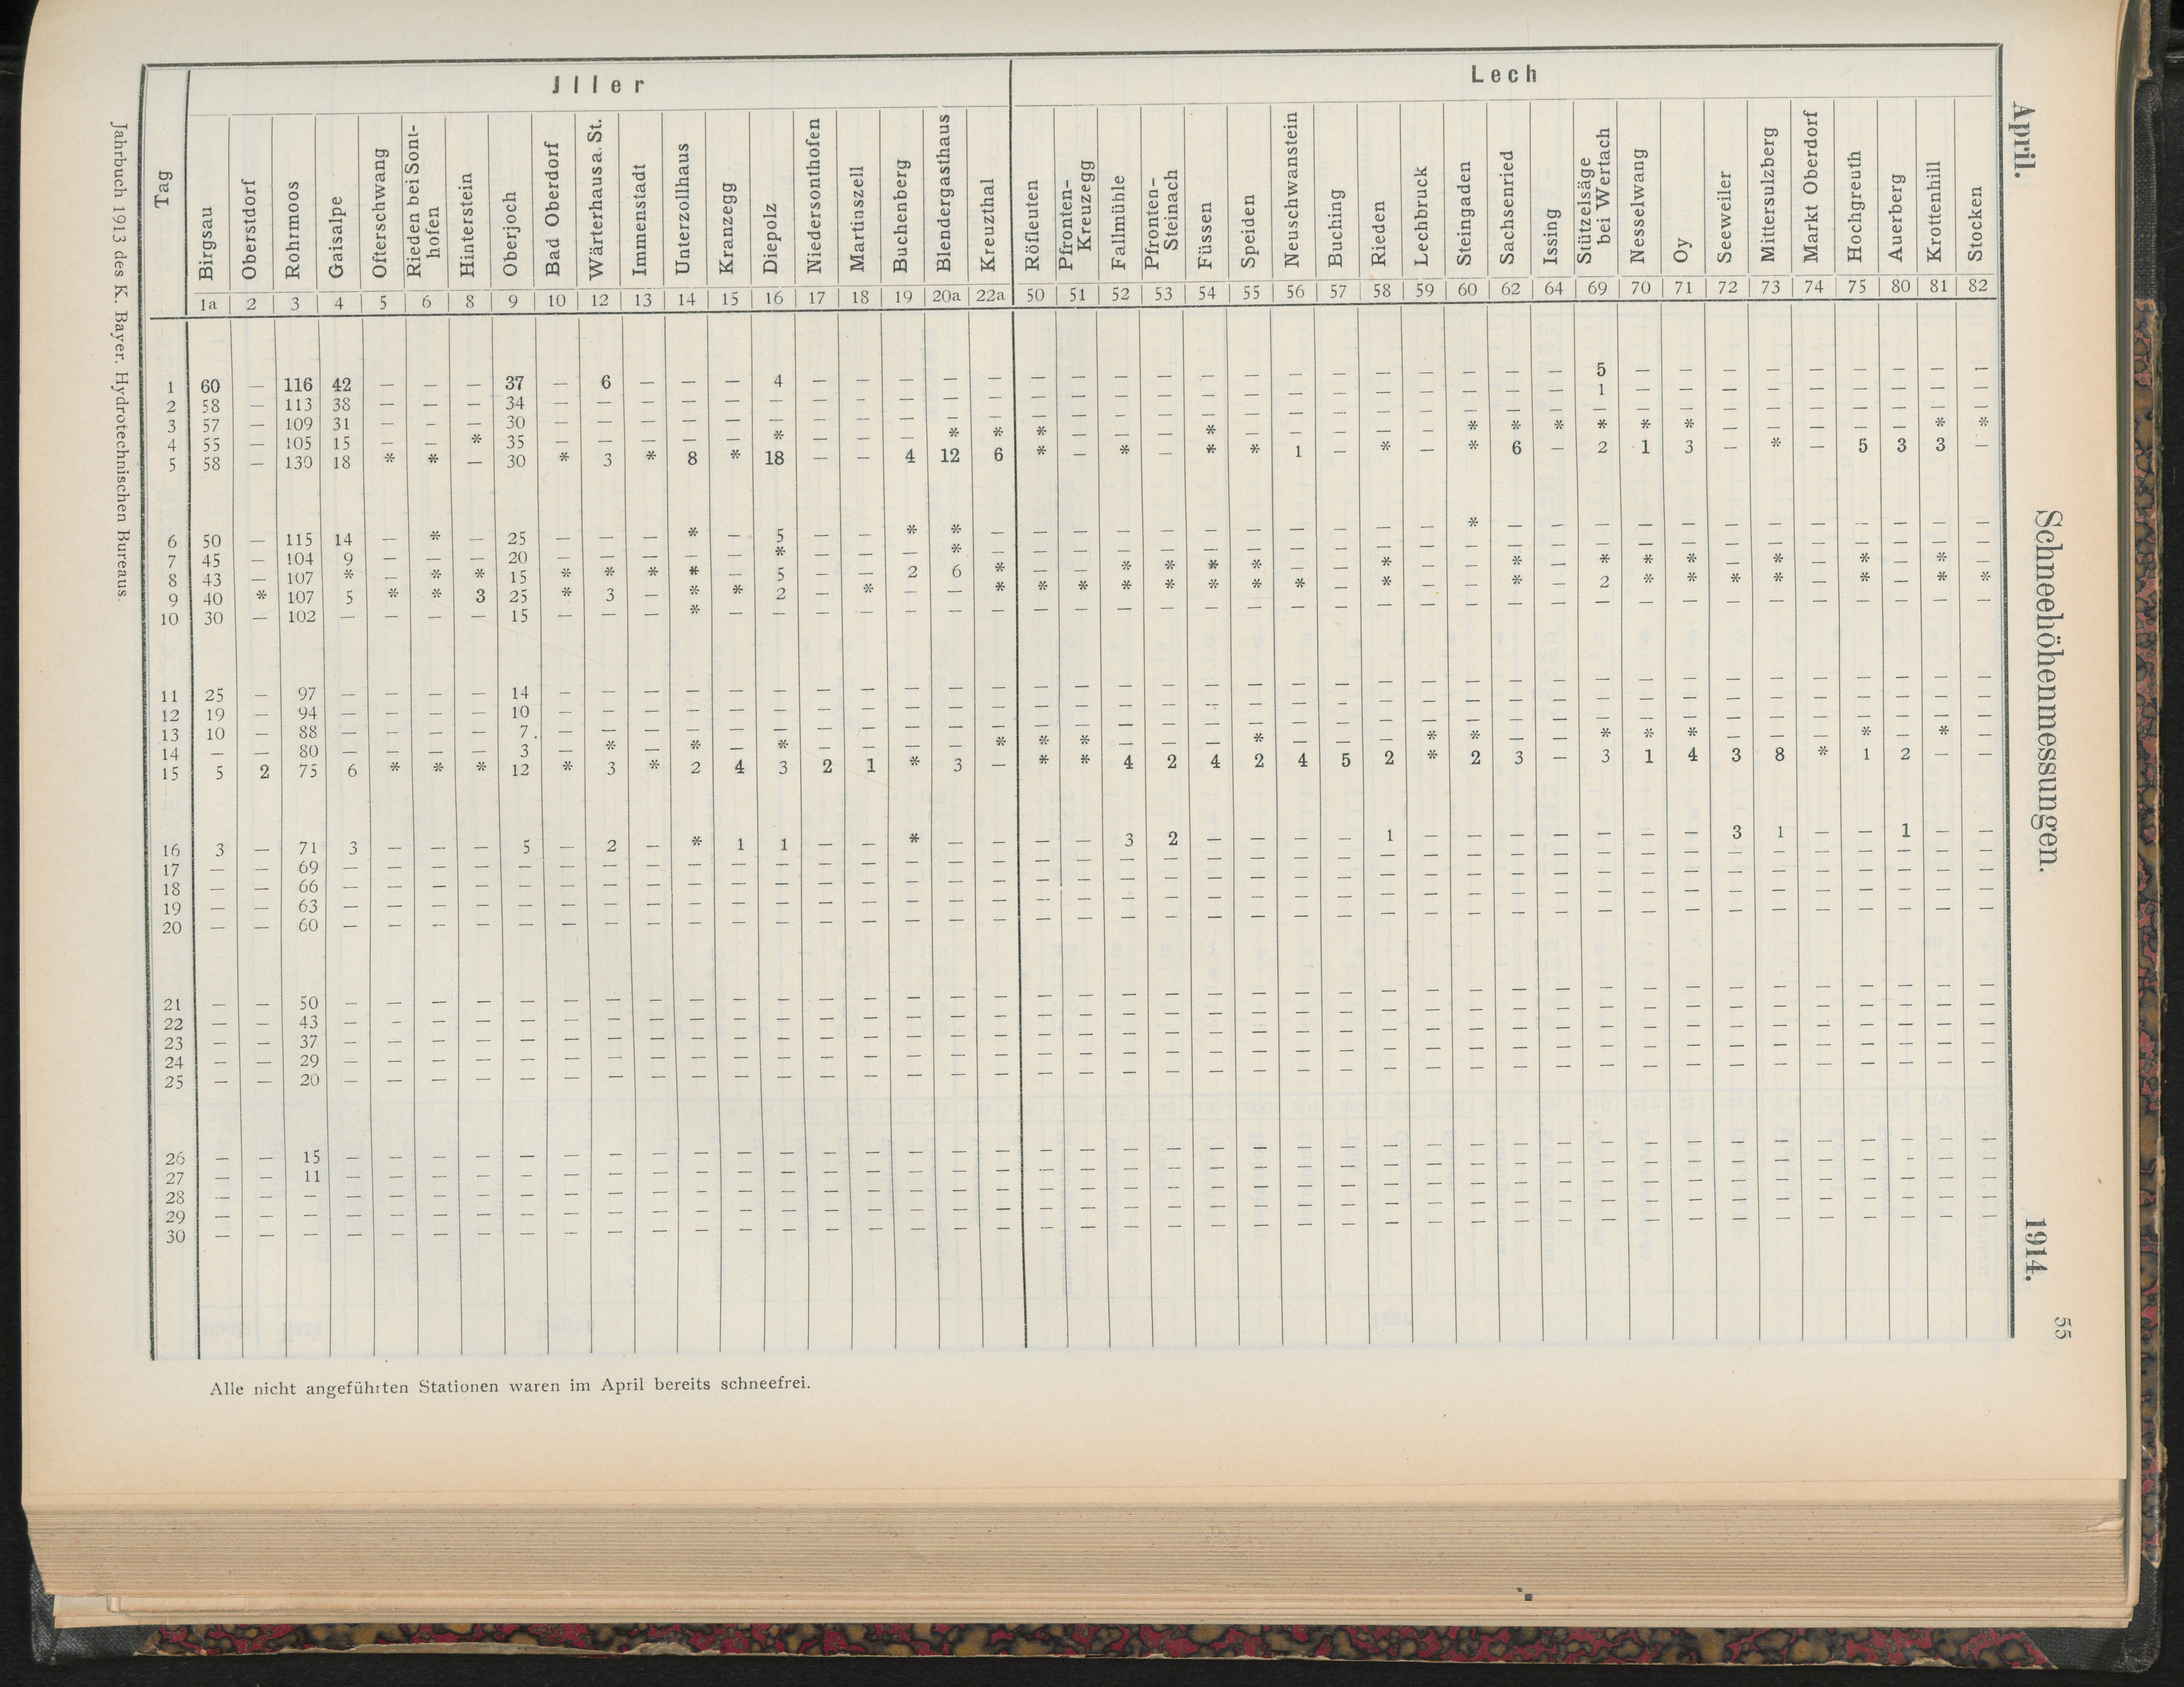 April.
Schneehöhenmessungen.
1914.
55
Jller
Lech
Tag
Birgsau
Oberstdorf
Rohrmoos
Gaisalpe
Ofterschwang
Rieden bei Sont-
hofen
Hinterstein
Oberjoch
Bad Oberdorf
Wärterhaus a. St.
Immenstadt
Unterzollhaus
Kranzegg
Diepolz
Niedersonthofen
Martinszell
Buchenberg
Blendergasthaus
Kreuzthal
Röfleuten
Pfronten-
Kreuzegg
Fallmühle
Pfronten-
Steinach
Füssen
Speiden
Neuschwanstein
Buching
Rieden
Lechbruck
Steingaden
Sachsenried
Issing
Stützelsäge
bei Wertach
Nesselwang
Oy
Seeweiler
Mittersulzberg
Markt Oberdorf
Hochgreuth
Auerberg
Krottenhill
Stocken
1a 2 3 4 5 6 8 9 10 12 13 14 15 16 17 18 19 20a 22a 50 51 52 53 54 55 56 57 58 59 60 62 64 69 70 71 72 73 74 75 80 81 82
1 60 — 116 42 — — — 37 — 6 — — — 4 — — — — — — — — — — — — — — — — — — 5 — — — — — — — — —
2 58 — 113 38 — — — 34 — — — — — — — — — — — — — — — — — — — — — — — — 1 — — — — — — — — —
3 57 — 109 31 — — — 30 — — — — — — — — — — — — — — — — — — — — — — — — — — — — — — — — — —
4 55 — 105 15 — — * 35 — — — — — * — — — * * * — — — * — — — — — * * * * * * — — — — — * *
5 58 — 130 18 * * — 30 * 3 * 8 * 18 — — 4 12 6 * — * — * * 1 — * — * 6 — 2 1 3 — * — 5 3 3 —
6 50 — 115 14 — * — 25 — — — * — 5 — — * * — — — — — — — — — — — * — — — — — — — — — — — —
7 45 — 104 9 — — — 20 — — — — — * — — — * — — — — — — — — — — — — — — — — — — — — — — — —
8 43 — 107 * — * * 15 * * * * — 5 — — 2 6 * — — * * * * — — * — — * — * * * — * — * — * —
9 40 * 107 5 * * 3 25 * 3 — * * 2 — * — — * * * * * * * * — * — — * — 2 * * * * — * — * *
10 30 — 102 — — — — 15 — — — * — — — — — — — — — — — — — — — — — — — — — — — — — — — — — —
11 25 — 97 — — — — 14 — — — — — — — — — — — — — — — — — — — — — — — — — — — — — — — — — —
12 19 — 94 — — — — 10 — — — — — — — — — — — — — — — — — — — — — — — — — — — — — — — — — —
13 10 — 88 — — — — 7 — — — — — — — — — — — — — — — — — — — — — — — — — — — — — — — — — —
14 — — 80 — — — — 3 — * — * — * — — — — * * * — — — * — — — * * — — * * * — — — * — * —
15 5 2 75 6 * * * 12 * 3 * 2 4 3 2 1 * 3 — * * 4 2 4 2 4 5 2 * 2 3 — 3 1 4 3 8 * 1 2 — —
16 3 — 71 3 — — — 5 — 2 — * 1 1 — — * — — — — 3 2 — — — — 1 — — — — — — — 3 1 — — 1 — —
17 — — 69 — — — — — — — — — — — — — — — — — — — — — — — — — — — — — — — — — — — — — — —
18 — — 66 — — — — — — — — — — — — — — — — — — — — — — — — — — — — — — — — — — — — — — —
19 — — 63 — — — — — — — — — — — — — — — — — — — — — — — — — — — — — — — — — — — — — — —
20 — — 60 — — — — — — — — — — — — — — — — — — — — — — — — — — — — — — — — — — — — — — —
21 — — 50 — — — — — — — — — — — — — — — — — — — — — — — — — — — — — — — — — — — — — — —
22 — — 43 — — — — — — — — — — — — — — — — — — — — — — — — — — — — — — — — — — — — — — —
23 — — 37 — — — — — — — — — — — — — — — — — — — — — — — — — — — — — — — — — — — — — — —
24 — — 29 — — — — — — — — — — — — — — — — — — — — — — — — — — — — — — — — — — — — — — —
25 — — 20 — — — — — — — — — — — — — — — — — — — — — — — — — — — — — — — — — — — — — — —
26 — — 15 — — — — — — — — — — — — — — — — — — — — — — — — — — — — — — — — — — — — — — —
27 — — 11 — — — — — — — — — — — — — — — — — — — — — — — — — — — — — — — — — — — — — — —
28 — — — — — — — — — — — — — — — — — — — — — — — — — — — — — — — — — — — — — — — — — —
29 — — — — — — — — — — — — — — — — — — — — — — — — — — — — — — — — — — — — — — — — — —
30 — — — — — — — — — — — — — — — — — — — — — — — — — — — — — — — — — — — — — — — — — —
Alle nicht angeführten Stationen waren im April bereits schneefrei.
Jahrbuch 1913 des K. Bayer. Hydrotechnischen Bureaus.